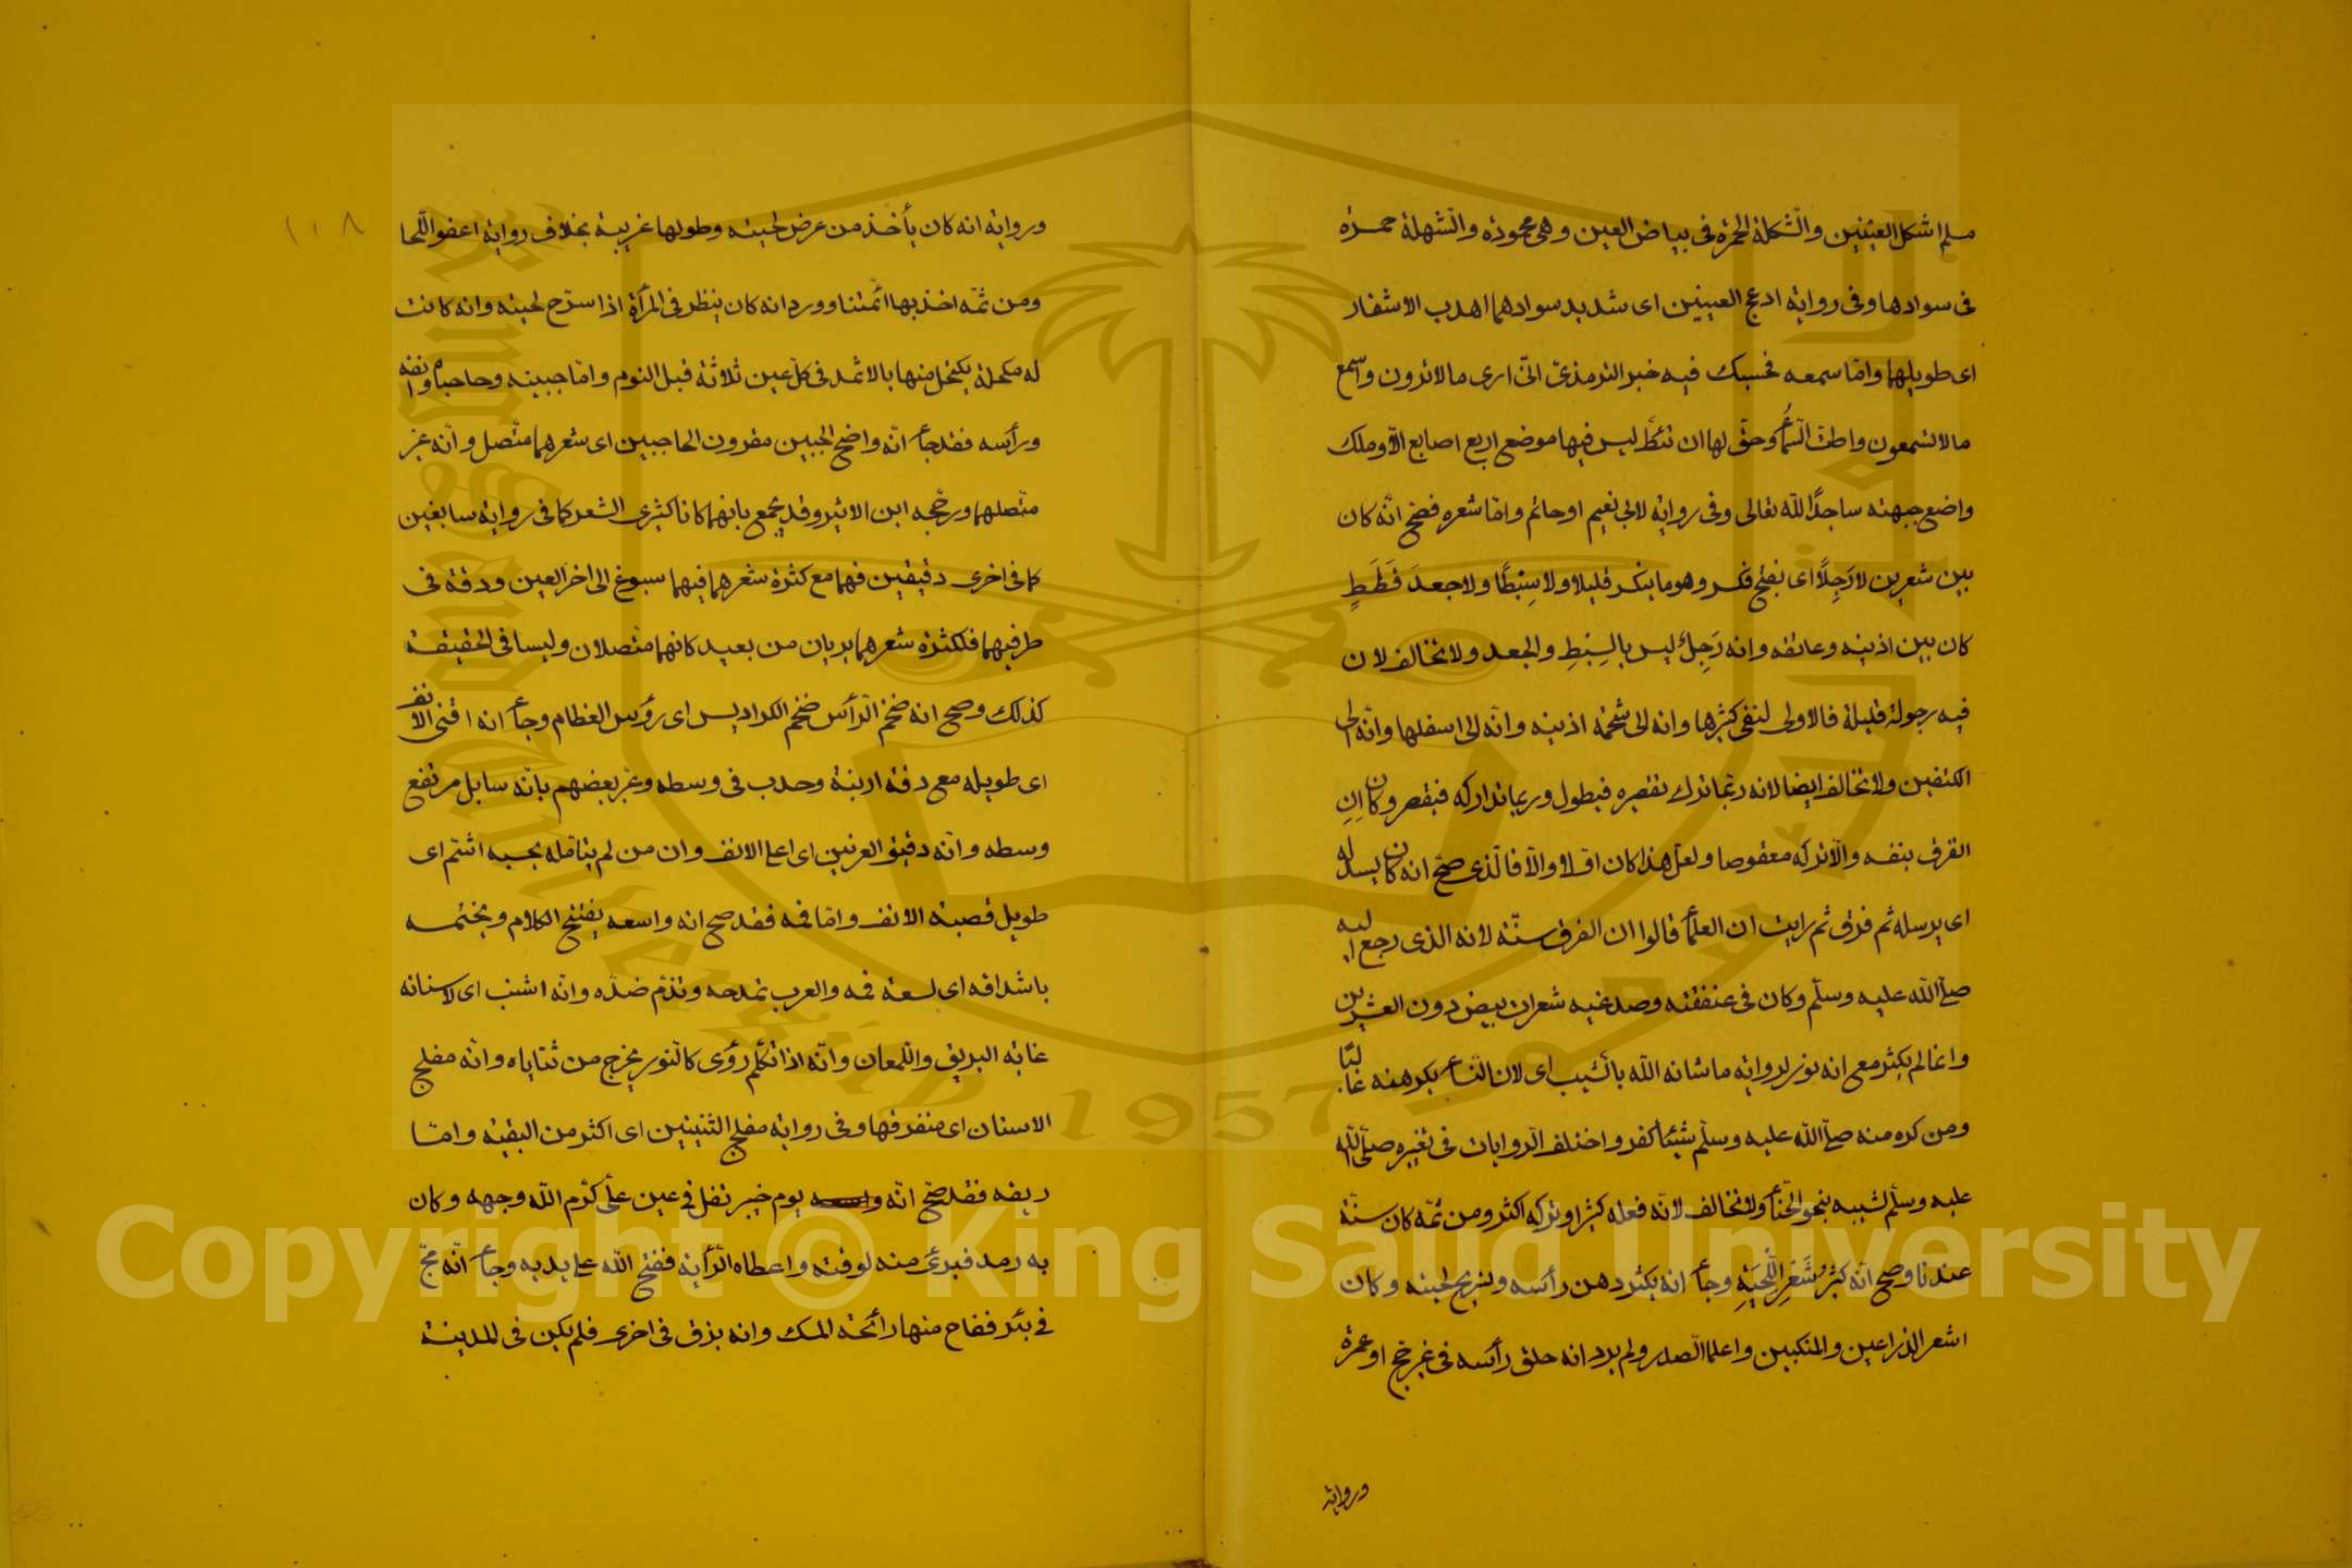 مسلم اشكل العينين والشكلة الحمرة في بياض العين وهي محمودة والشهلة حمرة
في سوادها وفي رواية ادعج العينين اى شديد سوادهما اهدب الاشفار
اى طويلها واما سمعه فحسبك فيه خبر الترمذى انى ارى ما لا ترون واسمع
ما لا تسمعون واطت السماء وحق لها ان تئط ليس فيها موضع اربع اصابع الا وملك
واضع جبهته ساجدًا للّه تعالى وفي رواية لابي نعيم او حائم واما شعره فصح انّه كان
بين شعرين لا رَجِلًا اى بفتح فكسر وهو ما ينكسر قليلا ولا سِبْطًا ولا جعد قَطَطٍ
كان بين اذنيه وعاتقه وانه رَجِلٌ ليس بالسِبْطِ والجعد ولا تخالف لان
فيه رجولة قليلة فالاولى لنفى كثيرها وانه الى شحمة اذنيه وانّه الى اسفلها وانّه الى
الكتفين ولا تخالف ايضا لانه ربما ترك تقصيره فيطول وربما تداركه فيقصر وكان ان
انفرق بنفسه والا تركه معقوصا ولعل هذا كان اولا والا فالّذى صحّ انه كان يسدله
اى يرسله ثم فرق ثم رايت ان العلماء قالوا ان الفرق سنّة لانه الذى رجع اليه
صلى اللّه عليه وسلّم وكان فى عنفقته وصدغيه شعران بيض دون العشرين
وانما لم يكثر مع انه نور لرواية ما شانه اللّه بالشيب اى لان النساء يكرهنه غالبًا
ومن كره منه صلى اللّه عليه وسلّم شيئا كفر واختلف الروايات فى تغيره صلّى اللّه
عليه وسلّم لشيبه بنحو الحنّاء ولا تخالف لانّه فعله كثيرا وتركه اكثر ومن ثمّه كان سنّة
عندنا وصح انّه كثيرُ شَعَرِ اللِّحْيَةِ وجاء انه يكثر دهن رأسه وتسريح لحيته وكان
اشعر الذراعين والمنكبين واعلا الصدر ولم يرد انه حلق رأسه فى غير حج او عمرة
ورواية
١١٨
ورواية انه كان يأخذ من عرض لحيته وطولها غريبة بخلاف رواية اعفوا اللّحا
ومن ثمّه اخذ بها ائمّتنا وورد انه كان ينظر فى المرأة اذا سرّح لحيته وانه كانت
له مكحلة يكتحل منها بالاثمد فى كل عين ثلاثة قبل النوم وامّا جبينه وحاجباه وانفه
ورأسه فقد جاء انّه واضح الجبين مقرون الحاجبين اى شعرهما متّصل وانّه غير
متّصلهما ورجّحه ابن الاثير وقد يجمع بانهما كانا كثيرى الشعر كما فى رواية سابغين
كما فى اخرى دقيقين فهما مع كثرة شعرهما فيهما سبوغ الى اخر العين ودقة فى
طرفيهما فلكثرة شعرهما يريان من بعيد كانهما متّصلان وليسا فى الحقيقة
كذلك وصح انه ضخم الرأس ضخم الكراديس اى رؤس العظام وجاء انه اقنى الانف
اى طويله مع دقة ارنبة وحدب فى وسطه وعبّر بعضهم بانّه سايل مرتفع
وسطه وانّه دقيق العرنين اى اعلا الانف وان من لم يتأمله يحسبه اشمّ اى
طويل قصبة الانف واما فمه فقد صح انه واسعه يفتتح الكلام ويختمه
باشداقه اى لسعة فمه والعرب تمدحه وتذم ضدّه وانّه اشنب اى لاسنانه
غاية البريق واللمعان وانّه اذا تكلّم رؤى كالنور يخرج من ثناياه وانّه مفلج
الاسنان اى متفرقها وفى رواية مفلج الثنيتين اى اكثر من البقية وامّا
ريقه فقد صحّ انّه يوم خيبر تفل فى عين علّى كرّم اللّه وجهه وكان
به رمد فبرئ منه لوقته واعطاه الرّأية ففتح اللّه على يديه وجاء انّه مجّ
فى بئر ففاح منها رائحة المسك وانه بزق فى اخرى فلم يكن فى المدينة
Copyright © King Saud University
King Saud University 1957